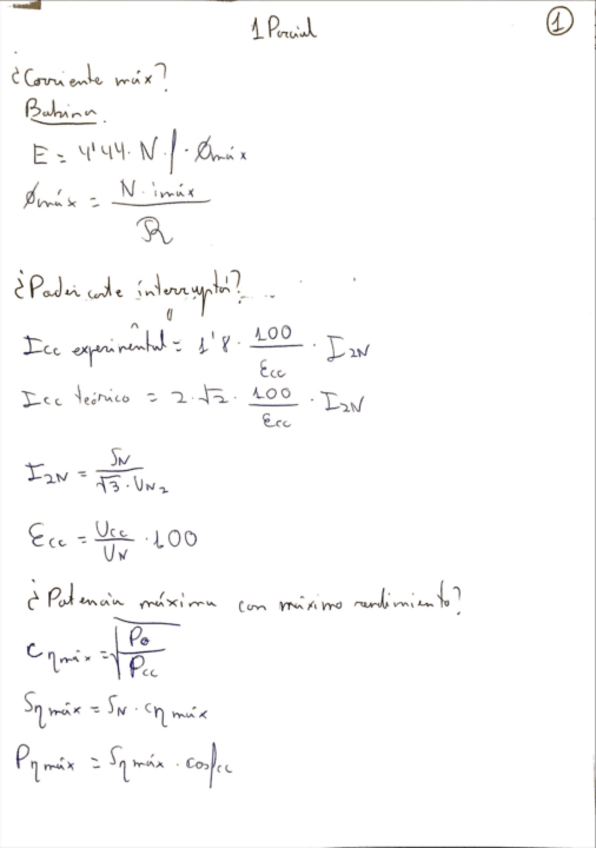 1 Parcial
1
¿Corriente máx?
Bobina.
E = 4'44 · N f · Ømáx
Ømáx = N · imáx / R
¿Poder corte interruptor?
Icc experimental = 1'8 · 100 / Ecc · I2N
Icc teórico = 2 · √2 · 100 / Ecc · I2N
I2N = SN / √3 · UN2
Ecc = Ucc / UN · 100
¿Potencia máxima con máximo rendimiento?
Cηmáx = √(Po / Pcc)
Sηmáx = SN · Cηmáx
Pηmáx = Sηmáx · cosφcc